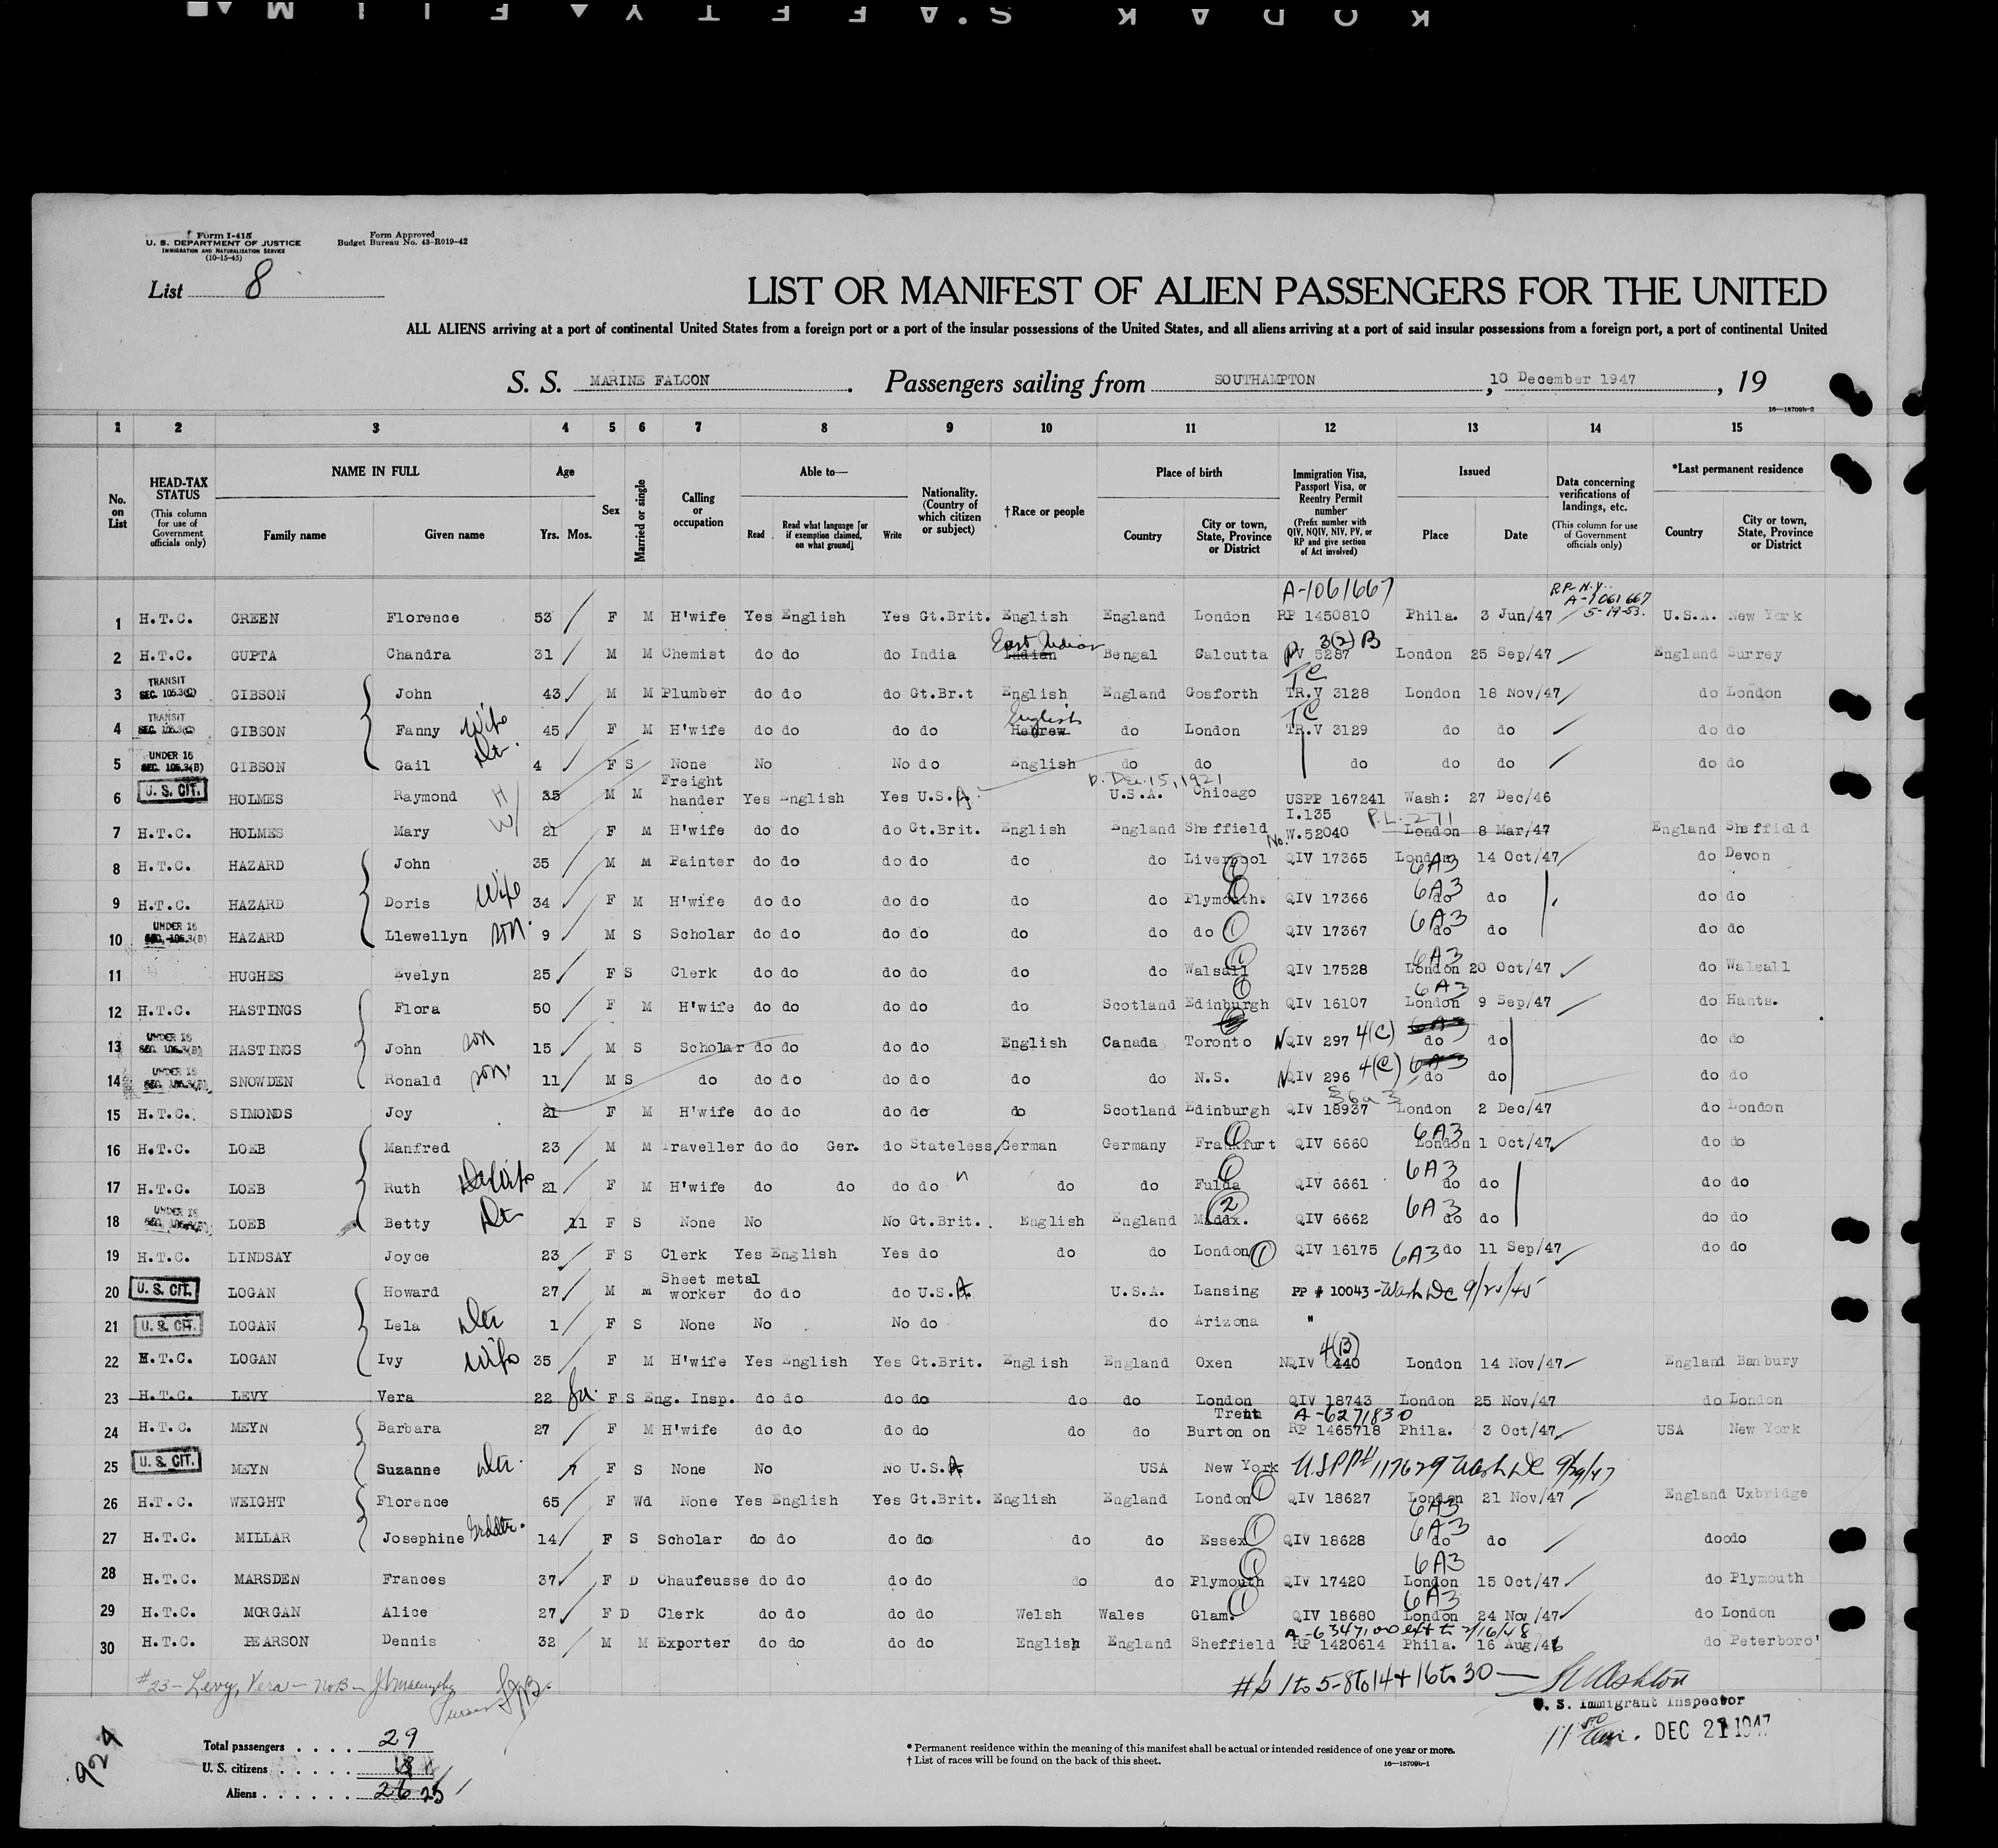 KODAK SAFETY FILM
Form I-415
U. S. DEPARTMENT OF JUSTICE
IMMIGRATION AND NATURALIZATION SERVICE
(10-15-45)
Form Approved
Budget Bureau No. 43-R019-42
List 8
LIST OR MANIFEST OF ALIEN PASSENGERS FOR THE UNITED
ALL ALIENS arriving at a port of continental United States from a foreign port or a port of the insular possessions of the United States, and all aliens arriving at a port of said insular possessions from a foreign port, a port of continental United
S. S. MARINE FALCON. Passengers sailing from SOUTHAMPTON, 10 December 1947, 19
16—18709b-2
1 2 3 4 5 6 7 8 9 10 11 12 13 14 15
No. on List
HEAD-TAX STATUS (This column for use of Government officials only)
NAME IN FULL Family name Given name
Age Yrs. Mos.
Sex
Married or single
Calling or occupation
Able to— Read Read what language [or if exemption claimed, on what ground] Write
Nationality. (Country of which citizen or subject)
†Race or people
Place of birth Country City or town, State, Province or District
Immigration Visa, Passport Visa, or Reentry Permit number (Prefix number with QIV, NQIV, NIV, PV, or RP and give section of Act involved)
Issued Place Date
Data concerning verifications of landings, etc. (This column for use of Government officials only)
*Last permanent residence Country City or town, State, Province or District
A-1061667 RP-N.Y. A-1061667 5-19-53.
1 H.T.C. GREEN Florence 53 F M H'wife Yes English Yes Gt.Brit. English England London RP 1450810 Phila. 3 Jun/47 U.S.A. New York
East Indian 3(2)B
2 H.T.C. GUPTA Chandra 31 M M Chemist do do do India Indian Bengal Calcutta PV 5287 London 25 Sep/47 England Surrey
TRANSIT SEC. 105.3(C) TC
3 GIBSON John 43 M M Plumber do do do Gt.Br.t English England Gosforth TR.V 3128 London 18 Nov/47 do London
TRANSIT SEC. 105.3(C) English TC
4 GIBSON Fanny Wife 45 F M H'wife do do do do Hebrew do London TR.V 3129 do do do do
UNDER 16 SEC. 105.3(B)
5 GIBSON Gail Dtr. 4 F S None No No do English do do do do do do do
U. S. CIT. b. Dec. 15, 1921
6 HOLMES Raymond H 35 M M Freight hander Yes English Yes U.S.A. U.S.A. Chicago USPP 167241 Wash: 27 Dec/46
I.135 P.L. 271
7 H.T.C. HOLMES Mary W 21 F M H'wife do do do Gt.Brit. English England Sheffield No. W.52040 London 8 Mar/47 England Sheffield
8 H.T.C. HAZARD John 35 M M Painter do do do do do do Liverpool QIV 17365 London 14 Oct/47 6A3 do Devon
9 H.T.C. HAZARD Doris Wife 34 F M H'wife do do do do do do Plymouth. QIV 17366 6A3 do do do do
UNDER 16 SEC. 105.3(B)
10 HAZARD Llewellyn son. 9 M S Scholar do do do do do do do QIV 17367 6A3 do do do do
11 HUGHES Evelyn 25 F S Clerk do do do do do do Walsall QIV 17528 6A3 London 20 Oct/47 do Walsall
12 H.T.C. HASTINGS Flora 50 F M H'wife do do do do do Scotland Edinburgh QIV 16107 6A3 London 9 Sep/47 do Hants.
UNDER 16 SEC. 105.3(B)
13 HASTINGS John son 15 M S Scholar do do do do English Canada Toronto NQIV 297 4(C) 6A3 do do do do
UNDER 16 SEC. 105.3(B)
14 SNOWDEN Ronald son. 11 M S do do do do do do do N.S. NQIV 296 4(C) 6A3 do do do do
S6a3
15 H.T.C. SIMONDS Joy 21 F M H'wife do do do do do Scotland Edinburgh QIV 18937 London 2 Dec/47 do London
16 H.T.C. LOEB Manfred 23 M M Traveller do do Ger. do Stateless German Germany Frankfurt QIV 6660 6A3 London 1 Oct/47 do do
17 H.T.C. LOEB Ruth Wife 21 F M H'wife do do do do " do do Fulda QIV 6661 6A3 do do do do
UNDER 16 SEC. 105.3(B)
18 LOEB Betty Dtr 11 F S None No No Gt.Brit. English England Middx. 2 QIV 6662 6A3 do do do do
19 H.T.C. LINDSAY Joyce 23 F S Clerk Yes English Yes do do do London QIV 16175 6A3 do 11 Sep/47 do do
20 U. S. CIT. LOGAN Howard 27 M M Sheet metal worker do do do U.S.A. U.S.A. Lansing PP # 10043 - Wash DC 9/25/45
21 U. S. CIT. LOGAN Lela Dtr 1 F S None No No do do Arizona "
22 H.T.C. LOGAN Ivy Wife 35 F M H'wife Yes English Yes Gt.Brit. English England Oxen NQIV 440 4(B) London 14 Nov/47 England Banbury
23 H.T.C. LEVY Vera 22 F S Eng. Insp. do do do do do do London QIV 18743 London 25 Nov/47 do London
24 H.T.C. MEYN Barbara 27 F M H'wife do do do do do do Burton on Trent A-6271830 RP 1465718 Phila. 3 Oct/47 USA New York
25 U. S. CIT. MEYN Suzanne Dtr. 7 F S None No No U.S.A. USA New York USPP# 117629 Wash DC 9/29/47
26 H.T.C. WEIGHT Florence 65 F Wd None Yes English Yes Gt.Brit. English England London QIV 18627 London 21 Nov/47 6A3 England Uxbridge
27 H.T.C. MILLAR Josephine Grddtr. 14 F S Scholar do do do do do do Essex QIV 18628 6A3 do do do do
28 H.T.C. MARSDEN Frances 37 F D Chaufeusse do do do do do do Plymouth QIV 17420 6A3 London 15 Oct/47 do Plymouth
29 H.T.C. MORGAN Alice 27 F D Clerk do do do do Welsh Wales Glam. QIV 18680 6A3 London 24 Nov/47 do London
A-6347100 ext to 2/16/48
30 H.T.C. PEARSON Dennis 32 M M Exporter do do do do English England Sheffield RP 1420614 Phila. 16 Aug/46 do Peterboro'
#23 - Levy, Vera - NOB - Purser
#s 1 to 5 - 8 to 14 + 16 to 30 —
U. S. Immigrant Inspector
DEC 21 1947
Total passengers . . . . 29
U. S. citizens . . . . .
Aliens . . . . . . 26 25
* Permanent residence within the meaning of this manifest shall be actual or intended residence of one year or more.
† List of races will be found on the back of this sheet.
16—18709b-1
924